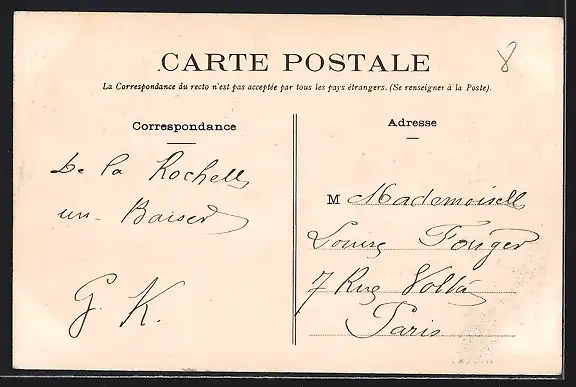 CARTE POSTALE
8
La Correspondance du recto n'est pas acceptée par tous les pays étrangers. (Se renseigner à la Poste).
Correspondance
De la Rochelle
un - Baiser
G. K.
Adresse
M Mademoiselle
Louise Fouger
7 Rue Volta
Paris